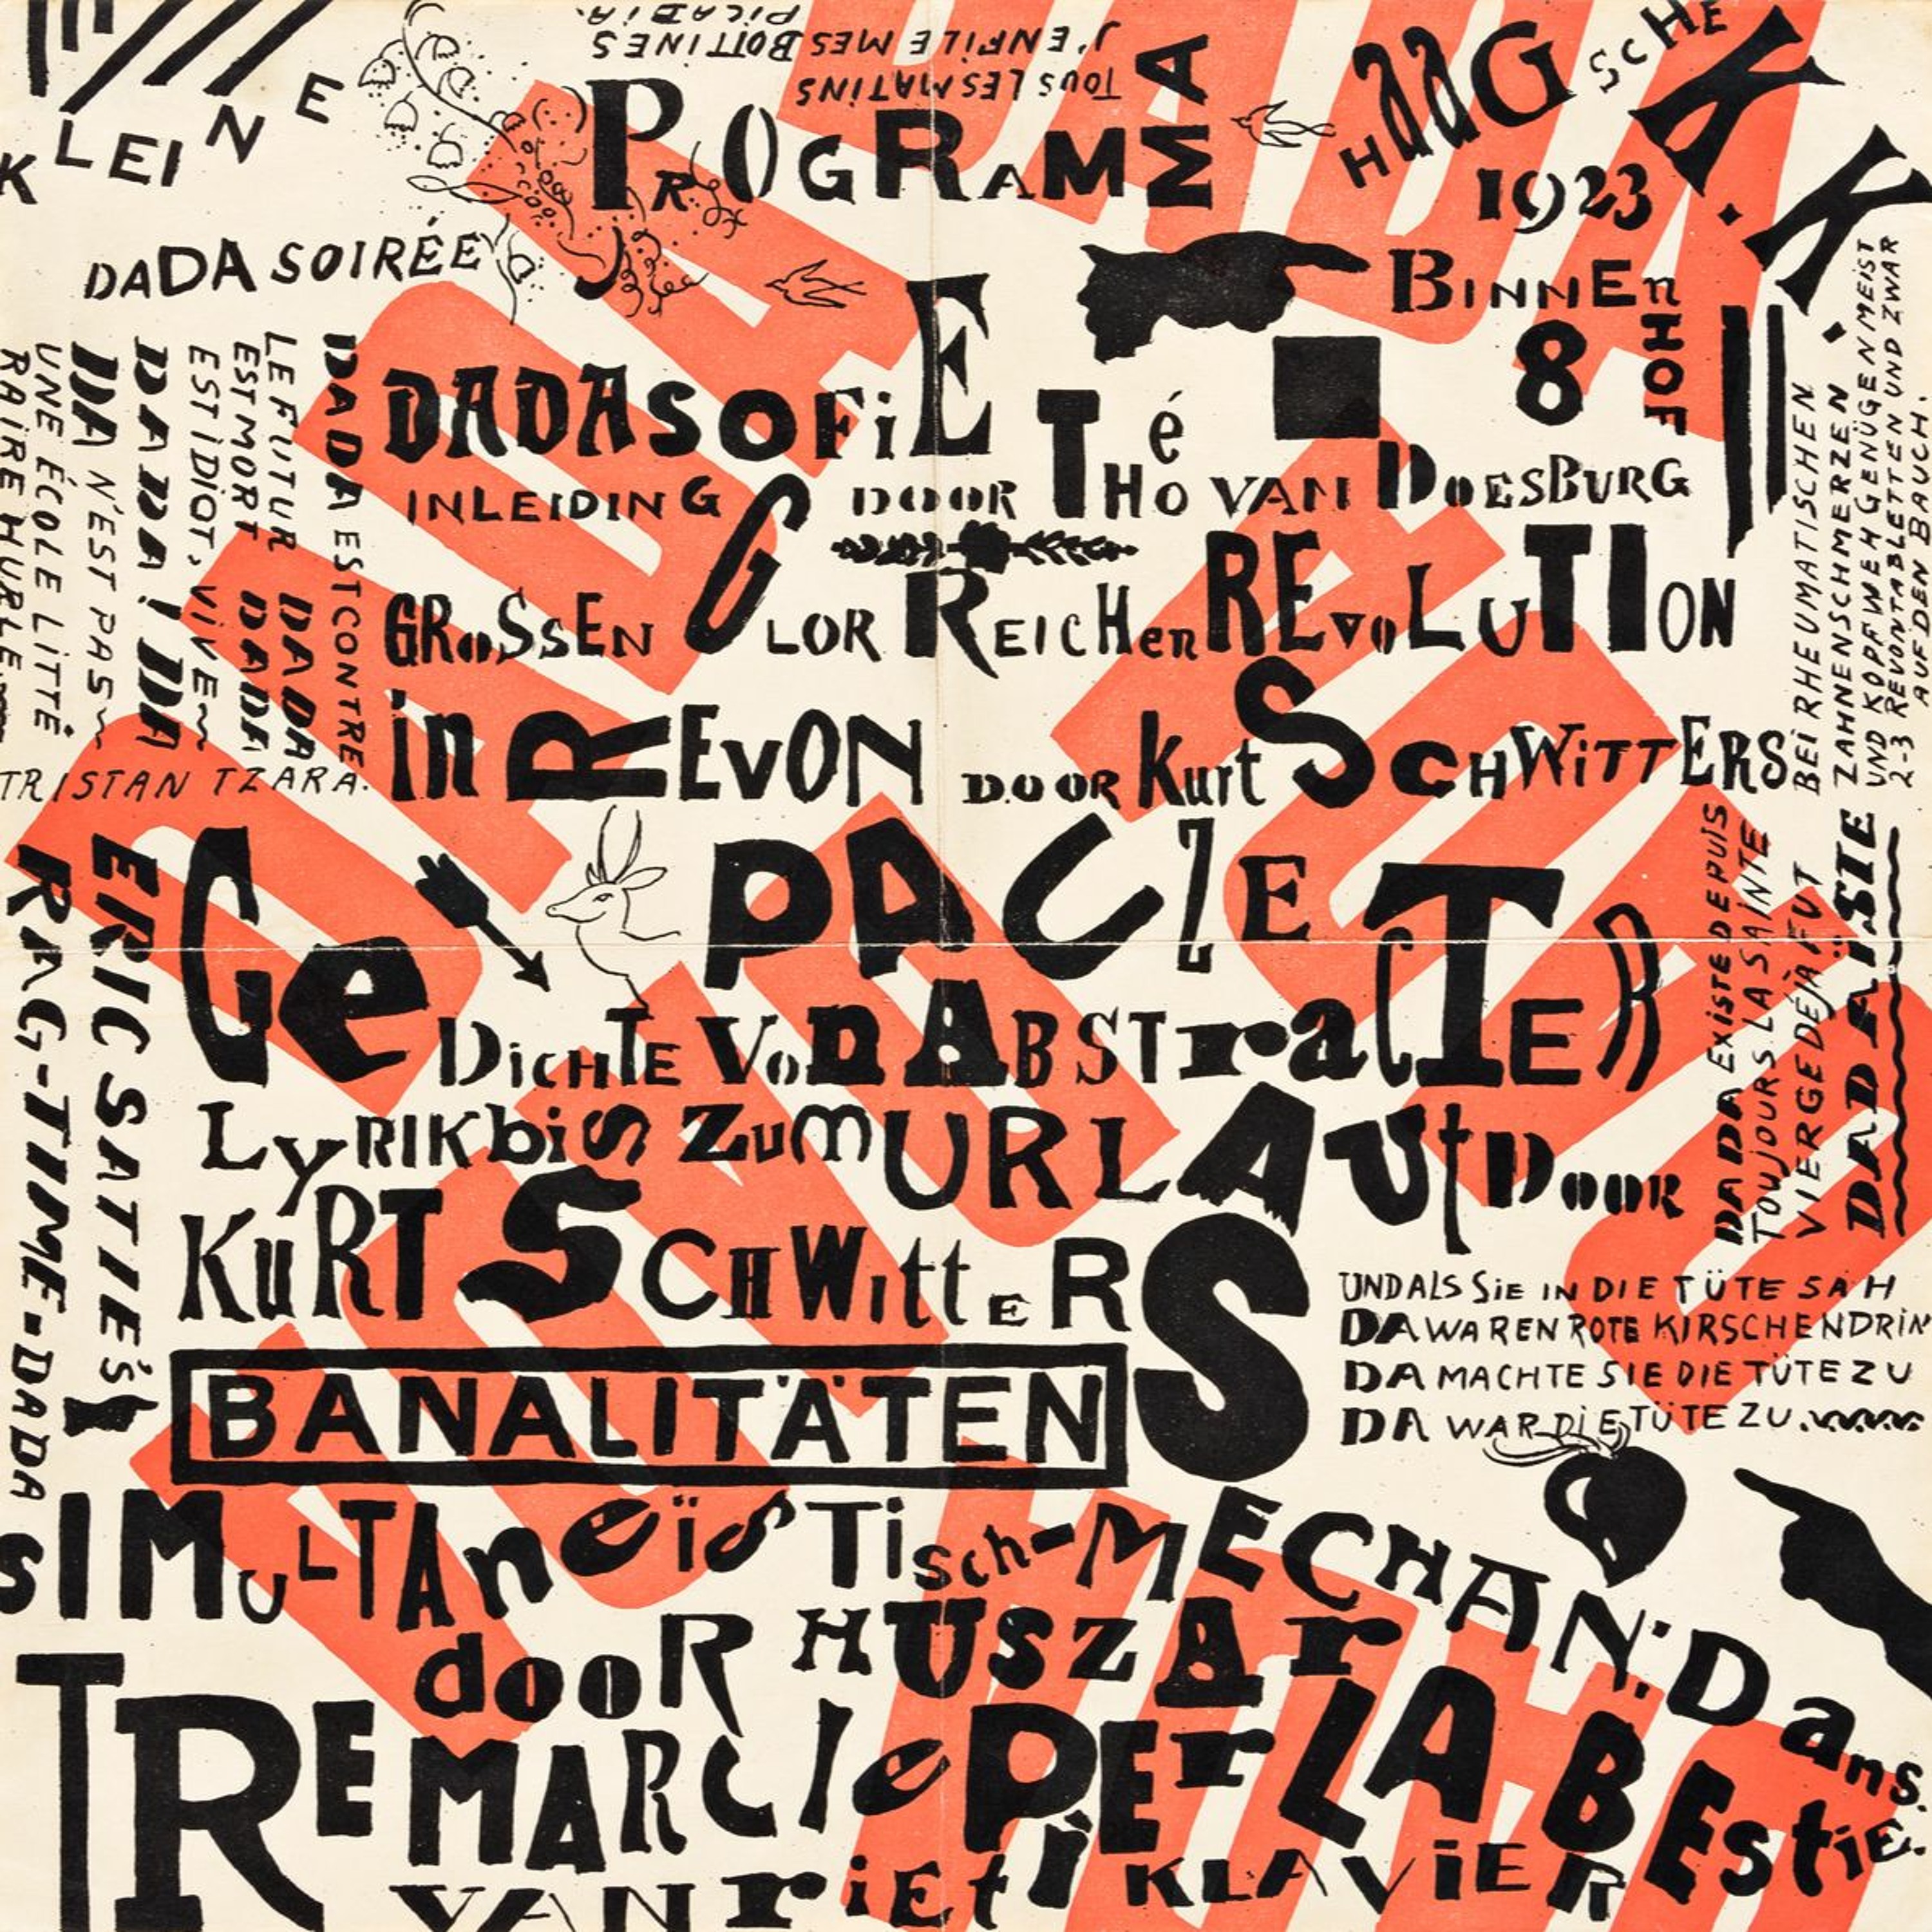 KLEINE
DADA SOIRÉE
TOUS LES MATINS
J'ENFILE MES BOTTINES
PiCABiA.
PROGRAMMA
HAAGSCHE K.K.
1923
BINNENHOF
8
DADASOFiE
INLEIDING DOOR THéO VAN DOESBURG
GROSSEN GLORREICHEN REVOLUTION
in REVON DOOR Kurt SCHWiTTERS
DADA EST CONTRE
LE FUTUR DADA
EST MORT DADA
EST iDiOT, ViVE
DADA! DA
DA N'EST PAS
UNE ÉCOLE LITTÉ
RAiRE HURLE
TRISTAN TZARA.
BEI RHEUMATISCHEN
ZAHNENSCHMERZEN
UND KOPFWEH GENÜGEN MEIST
2-3 REVONTABLETTEN UND ZWAR
AUF DEN BAUCH.
ERIC SATIE'S
RAG-TIME-DADA
GeDICHTE VON ABSTraCTER
LyRIK biS ZUm URLAUt DOOR
KuRT SCHWittERS
DADA EXiSTE DEPUiS
TOUJOURS LA SAiNTE
ViERGE DÉJÀ FUT
DADAÏSTE
UND ALS SiE IN DIE TÜTE SAH
DA WAREN ROTE KIRSCHEN DRIN
DA MACHTE SIE DIE TÜTE ZU
DA WAR DiE TÜTE ZU.
BANALITÄTEN
SIMULTAneïsTisch-MECHAN: Dans.
dooR HUSZAr
TREMARCIe PEr LA BEStiE.
VAN riEt
KLAViER